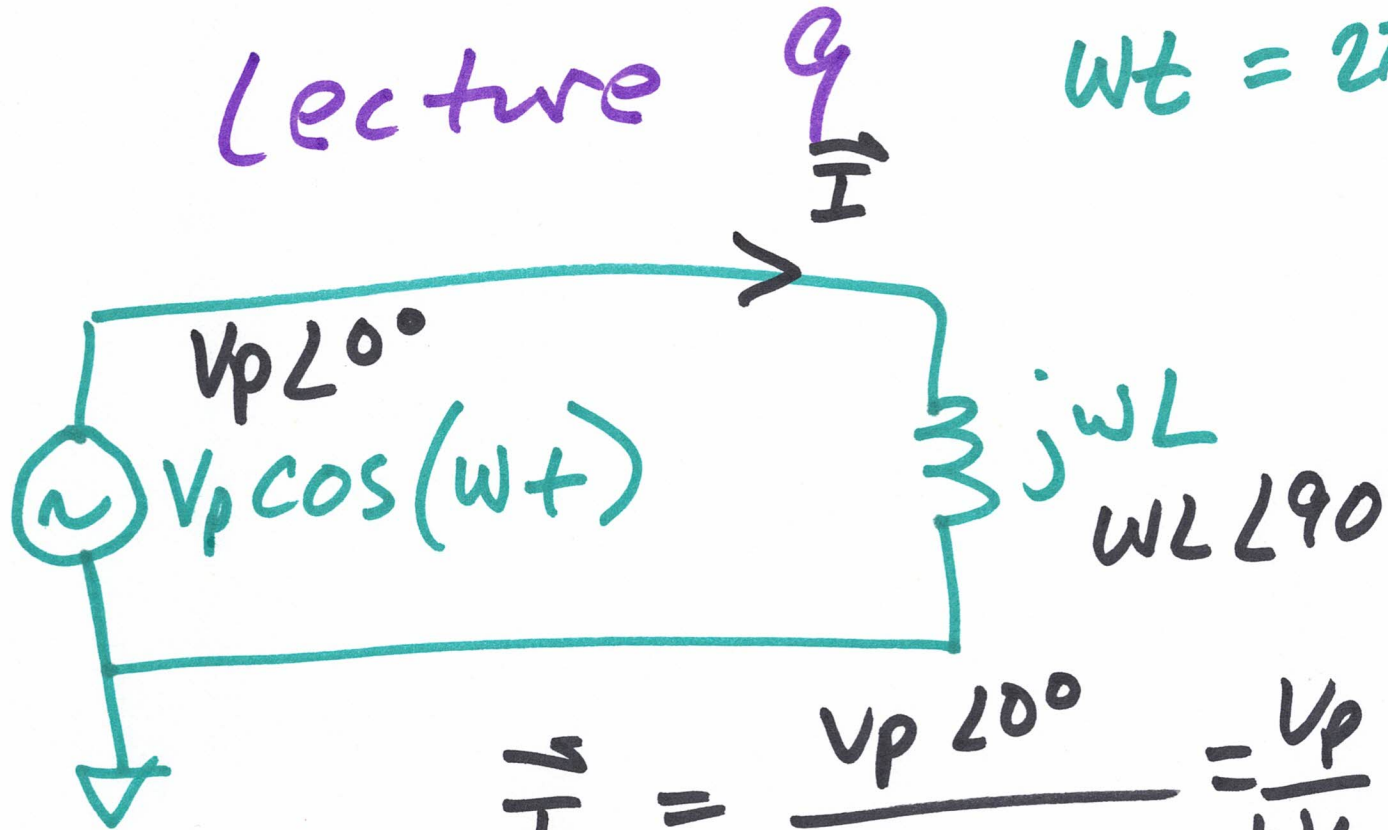 Lecture 9
wt = 2
I
Vp∠0°
Vp cos(wt)
jwL
wL∠90
I = Vp∠0° = Vp